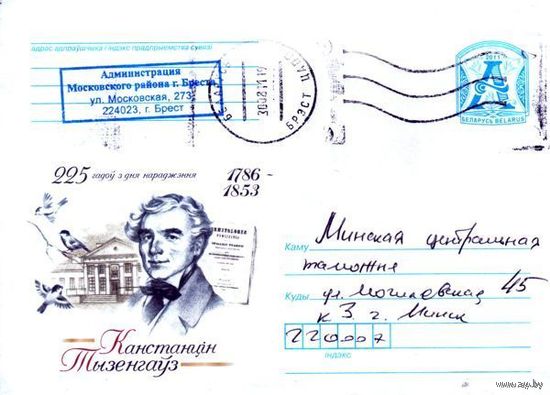 адрас адпраўшчыка і індэкс прадпрыемства сувязі
Администрация
Московского района г. Бреста
ул. Московская, 273
224023, г. Брест
БРЭСТ
2011
А
БЕЛАРУСЬ BELARUS
225 гадоў з дня нараджэння 1786 -
1853
ОРНИТОЛОГИЯ
Канстанцін
Тызенгаўз
Каму Минская центральная
таможня
Куды ул. Могилевская 45
к 3 г. Минск
220007
індэкс
© www.ay.by